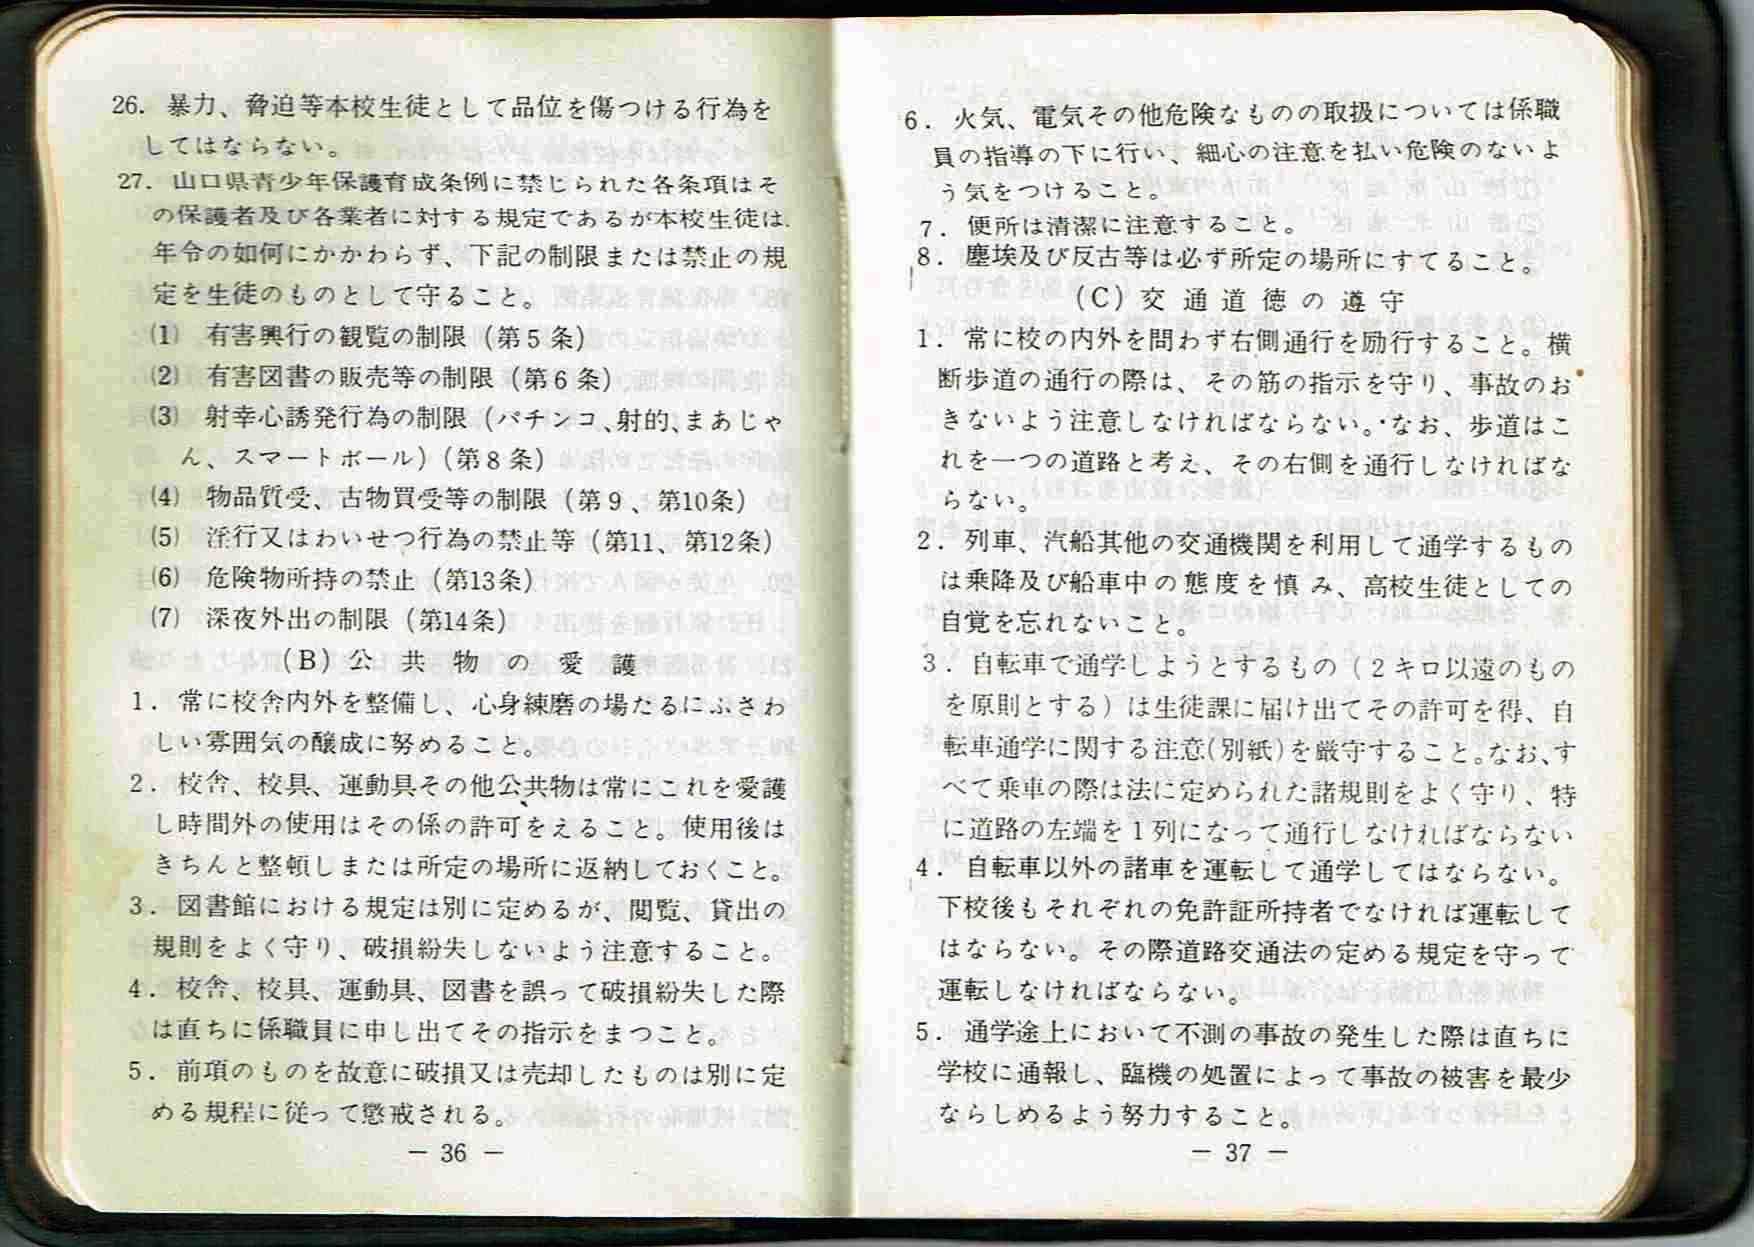 26. 暴力、脅迫等本校生徒として品位を傷つける行為を
してはならない。
27. 山口県青少年保護育成条例に禁じられた各条項はそ
の保護者及び各業者に対する規定であるが本校生徒は、
年令の如何にかかわらず、下記の制限または禁止の規
定を生徒のものとして守ること。
(1) 有害興行の観覧の制限（第5条）
(2) 有害図書の販売等の制限（第6条）
(3) 射幸心誘発行為の制限（パチンコ、射的、まあじゃ
ん、スマートボール）（第8条）
(4) 物品質受、古物買受等の制限（第9、第10条）
(5) 淫行又はわいせつ行為の禁止等（第11、第12条）
(6) 危険物所持の禁止（第13条）
(7) 深夜外出の制限（第14条）
(B) 公共物の愛護
1. 常に校舎内外を整備し、心身練磨の場たるにふさわ
しい雰囲気の醸成に努めること。
2. 校舎、校具、運動具その他公共物は常にこれを愛護
し時間外の使用はその係の許可をえること。使用後は
きちんと整頓しまたは所定の場所に返納しておくこと。
3. 図書館における規定は別に定めるが、閲覧、貸出の
規則をよく守り、破損紛失しないよう注意すること。
4. 校舎、校具、運動具、図書を誤って破損紛失した際
は直ちに係職員に申し出てその指示をまつこと。
5. 前項のものを故意に破損又は売却したものは別に定
める規程に従って懲戒される。
— 36 —
6. 火気、電気その他危険なものの取扱については係職
員の指導の下に行い、細心の注意を払い危険のないよ
う気をつけること。
7. 便所は清潔に注意すること。
8. 塵埃及び反古等は必ず所定の場所にすてること。
(C) 交通道徳の遵守
1. 常に校の内外を問わず右側通行を励行すること。横
断歩道の通行の際は、その筋の指示を守り、事故のお
きないよう注意しなければならない。なお、歩道はこ
れを一つの道路と考え、その右側を通行しなければな
らない。
2. 列車、汽船其他の交通機関を利用して通学するもの
は乗降及び船車中の態度を慎み、高校生徒としての
自覚を忘れないこと。
3. 自転車で通学しようとするもの（2キロ以遠のもの
を原則とする）は生徒課に届け出てその許可を得、自
転車通学に関する注意(別紙)を厳守すること。なお、す
べて乗車の際は法に定められた諸規則をよく守り、特
に道路の左端を1列になって通行しなければならない
4. 自転車以外の諸車を運転して通学してはならない。
下校後もそれぞれの免許証所持者でなければ運転して
はならない。その際道路交通法の定める規定を守って
運転しなければならない。
5. 通学途上において不測の事故の発生した際は直ちに
学校に通報し、臨機の処置によって事故の被害を最少
ならしめるよう努力すること。
— 37 —